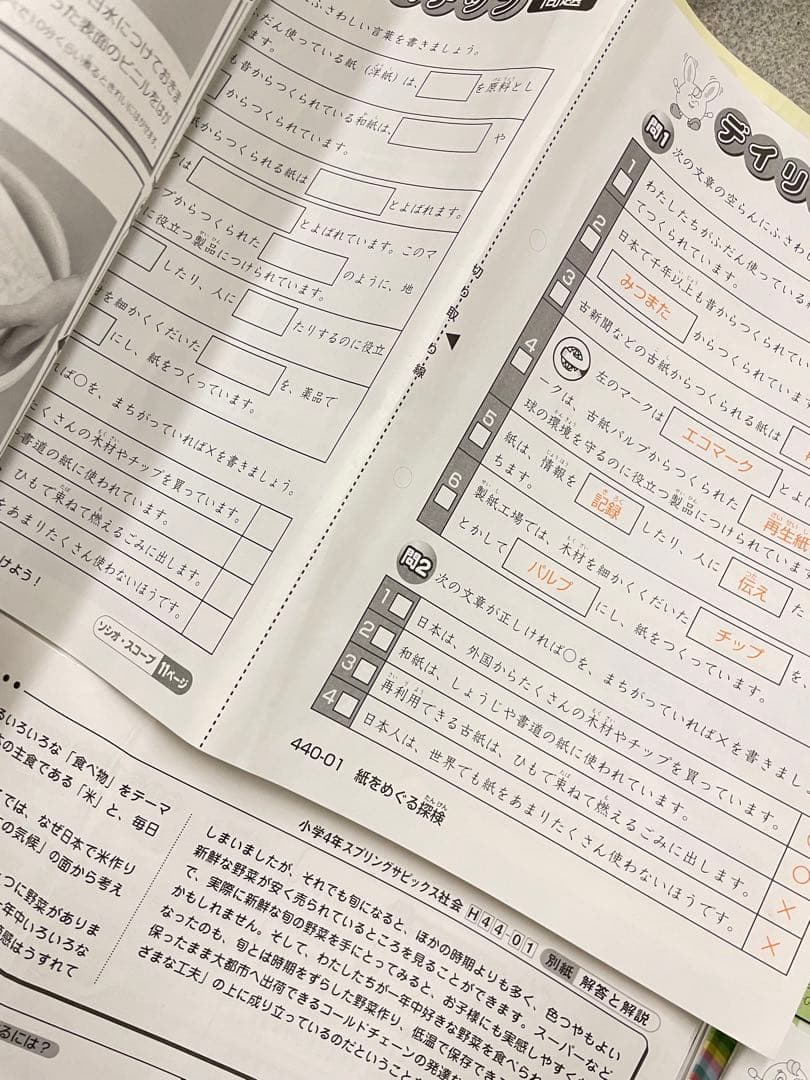 問題
ふさわしい言葉を書きましょう。
だん使っている紙（洋紙）は、
を原料とし
ます。
も昔からつくられている和紙は、
や
からつくられています。
紙からつくられる紙は
とよばれます。
クは
とよばれています。このマ
ップからつくられた
のように、地
に役立つ製品につけられています。
したり、人に
たりするのに役立
を細かくくだいた
を、薬品で
にし、紙をつくっています。
れば○を、まちがっていれば×を書きましょう。
たくさんの木材やチップを買っています。
や書道の紙に使われています。
ひもで束ねて燃えるごみに出します。
をあまりたくさん使わないほうです。
けよう！
ソシオ・スコープ 11ページ
切り取り線
デイリ
問1
次の文章の空らんにふさわし
1
わたしたちがふだん使っている
てつくられています。
2
日本で千年以上も昔からつくられてい
みつまた
からつくられてい
3
古新聞などの古紙からつくられる紙は
4
左のマークは
エコマーク
とよ
ークは、古紙パルプからつくられた
再生紙
球の環境を守るのに役立つ製品につけられています
5
紙は、情報を
記録
したり、人に
伝え
た
ちます。
6
製紙工場では、木材を細かくくだいた
チップ
を、
とかして
パルプ
にし、紙をつくっています。
問2
次の文章が正しければ○を、まちがっていれば×を書きましょ
1
日本は、外国からたくさんの木材やチップを買っています。
2
和紙は、しょうじや書道の紙に使われています。
○
3
再利用できる古紙は、ひもで束ねて燃えるごみに出します。
×
4
日本人は、世界でも紙をあまりたくさん使わないほうです。
×
440-01 紙をめぐる探検
小学4年スプリングサピックス社会 H44-01 別紙 解答と解説
るいろいろな「食べ物」をテーマ
の主食である「米」と、毎日
では、なぜ日本で米作り
の気候」の面から考え
つに野菜がありま
年中いろいろな
感はうすれて
しまいましたが、それでも旬になると、ほかの時期よりも多く、色つやもよい
新鮮な野菜が安く売られているところを見ることができます。スーパーなど
で、実際に新鮮な旬の野菜を手にとってみると、お子様にも実感しやすく
かもしれません。そして、わたしたちが一年中好きな野菜を食べられ
なったのも、旬とは時期をずらした野菜作り、低温で保存でき
保ったまま大都市へ出荷できるコールドチェーンの発達な
ざまな工夫」の上に成り立っているのだということ
るには？